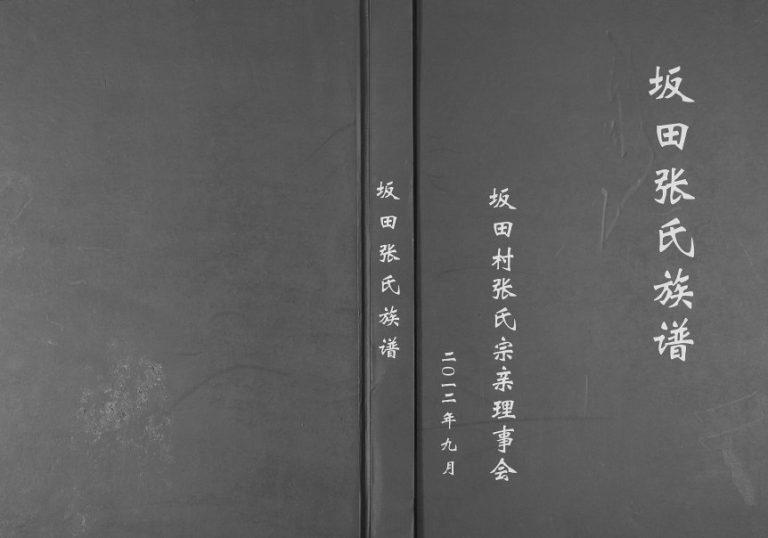 坂田张氏族谱
坂田村张氏宗亲理事会
二〇一二年九月
坂田张氏族谱